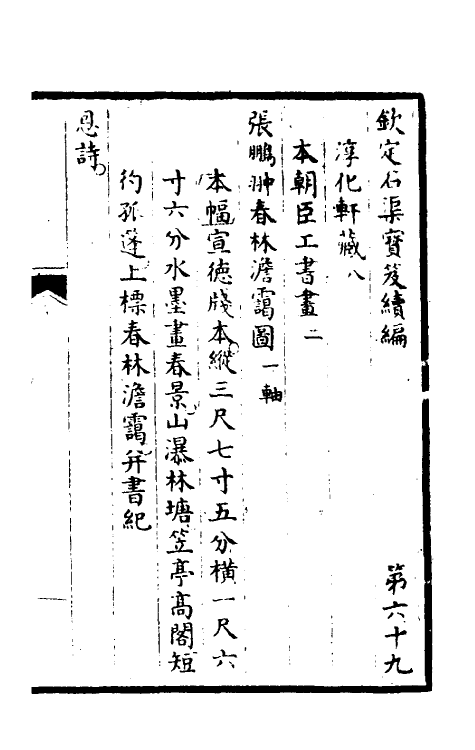 欽定石渠寶笈續編 第六十九
淳化軒藏 八
本朝臣工書畫 二
張鵬翀春林澹靄圖 一軸
本幅宣德牋本縱三尺七寸五分橫一尺六
寸六分水墨畫春景山瀑林塘笠亭高閣短
彴孤篷上標春林澹靄并書紀
恩詩